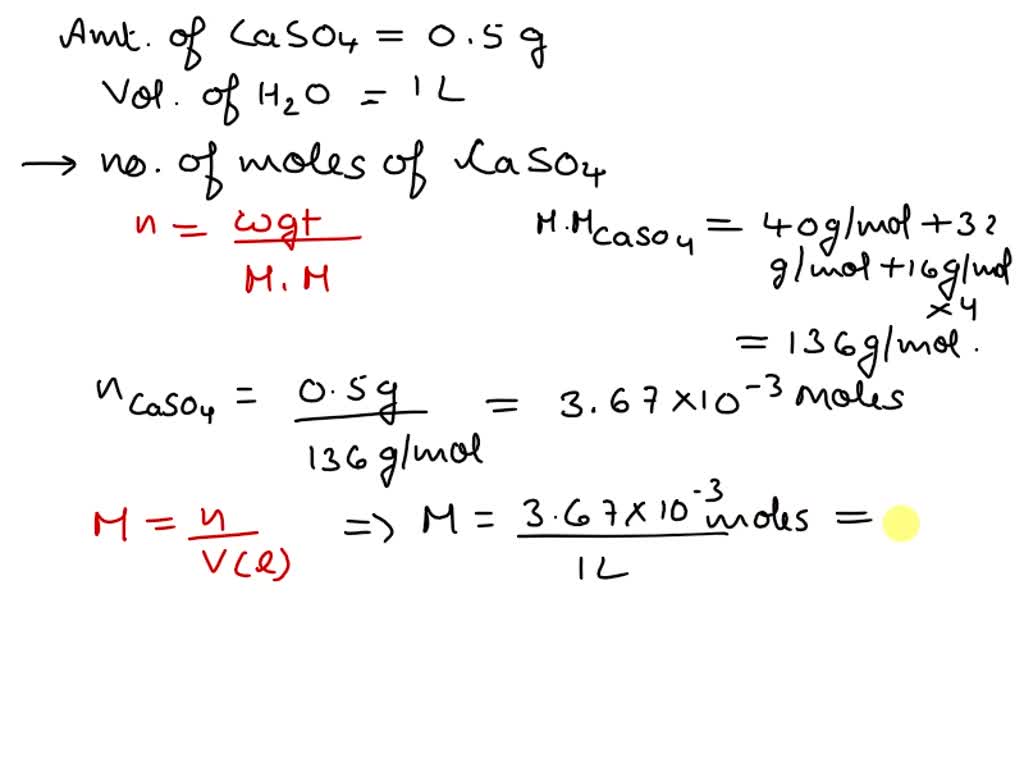 Amt. of CaSO4 = 0.5 g
Vol. of H2O = 1 L
→ no. of moles of CaSO4
n = wgt / M.M
M.M CaSO4 = 40g/mol + 32
g/mol + 16g/mol
× 4
= 136g/mol.
n CaSO4 = 0.5 g / 136 g/mol = 3.67 × 10⁻³ moles
M = n / V(l) => M = 3.67 × 10⁻³ moles / 1L =